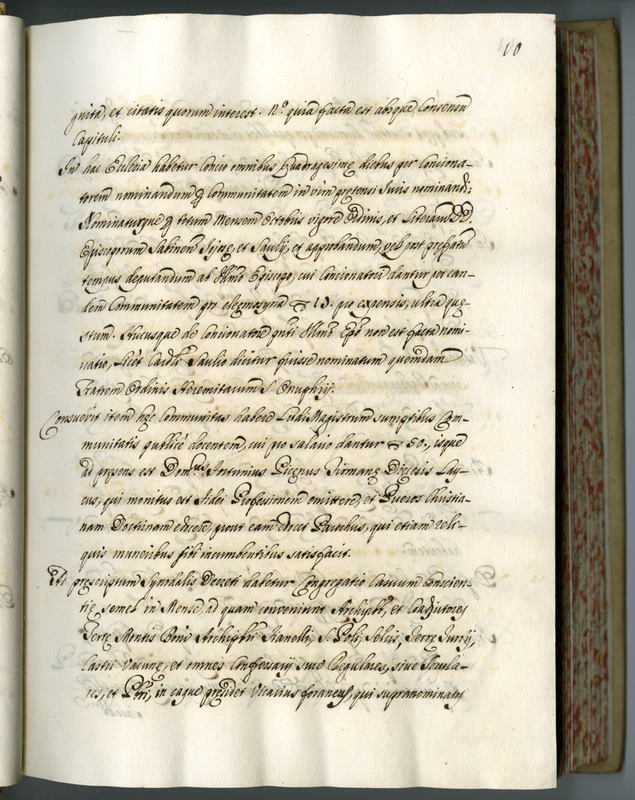 10
gnita, et citatis quorum interest. N.º quia facta est absque Consensu
Capituli.
In hac Ecclesia habetur Concio omnibus Quadragesime diebus per Conciona-
torem nominandum Communitatem in vim pretensi Juris nominandi;
Nominaturque totum Mensem Octobris vigore Edinis, et literarum DD
Episcoporum Sabinen et Sauly, et approbandum, vel ost prefatu
tempus deputandum ab Illmo Episcopo, cui Concionatori dantur per ean-
dem Communitatem pro elemosyna 15. pro expensis, ultra que-
stum. Hucusque de Concionatore pnti Illmo Epo non est facta nomi-
natio, licet Cardlis Saulio dicitur fuisse nominatum quendam
Fratrem Ordinis Heremitarum S. Onuphrij.
Consuevit item hec Communitas habere Ludi Magistrum sumptibus Com-
munitatis publicè docentem, cui pro salario dantur 50., isque
ad presens est Domnus Fortunius Picenus Firmane Dioecesis Lay-
cus, qui monitus est fidei Professionem emittere, et Pueros Christia-
nam Doctrinam edocere, prout eam docet Parochus, qui etiam reli-
quis muneribus sibi incumbentibus satisfacit.
Ad prescriptum Synodalis Decreti habetur Congregatio Casuum Conscien-
tie semel in Mense, ad quam conveniunt Archipbr, et Coadjutores
Terre Montis Boni Archipbri Gianelli, S. Poli, Selcis, Terre Turris,
Castri Vacune, et omnes Confessarij sive Regulares, sive Secula-
res, et Pbri, in eaque presidet Vicarius foraneus, qui supranominatos